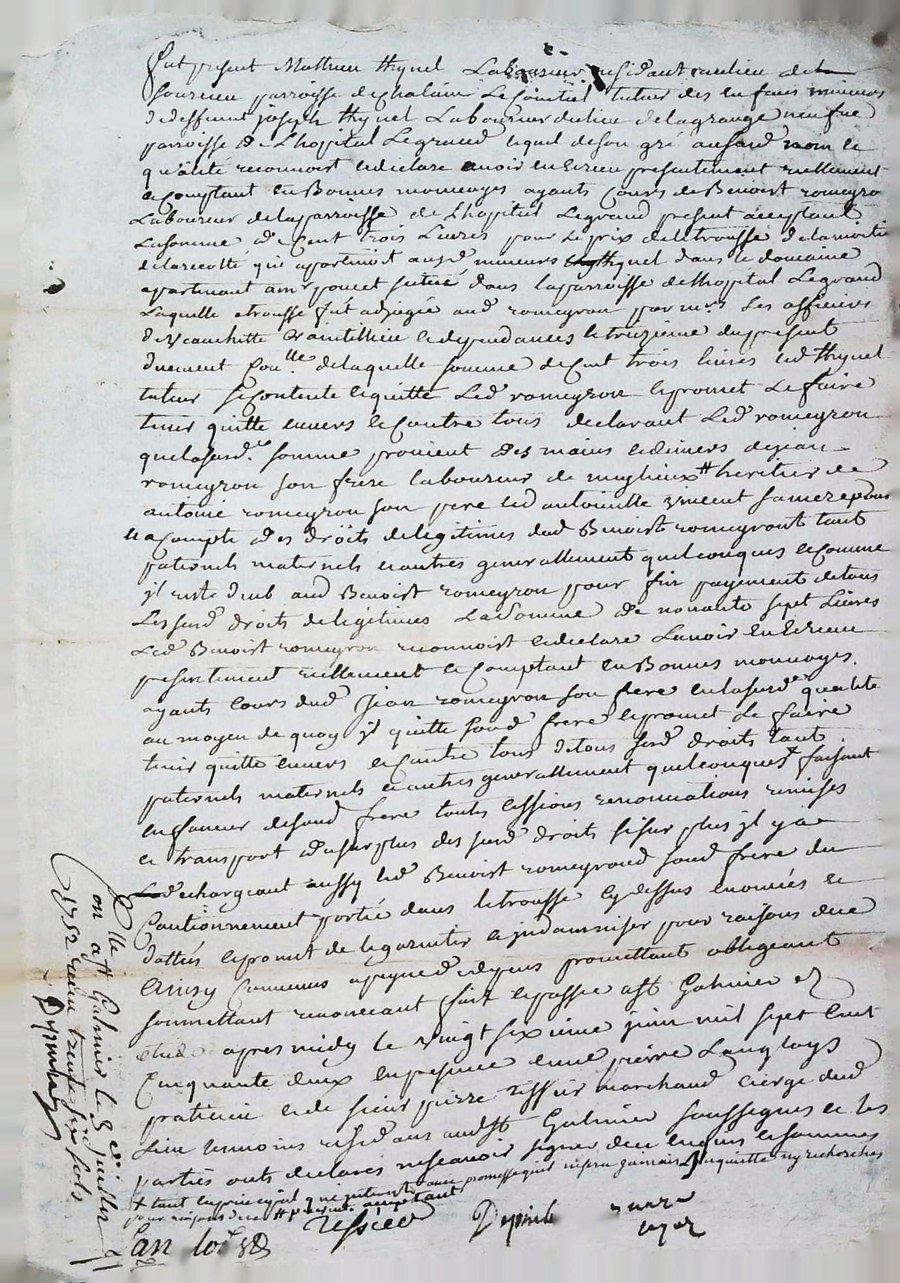 fut present Mathieu thynel Laboureur residant au lieu de
parroisse de Chalain Le Comtal tuteur des enfans mineurs
de deffunt joseph thynel Laboureur du lieu de lagrange neufve
parroisse de L'hopital Legrand lequel de son gré aususd nom et
qualité reconnoit et declare avoir eu et receu presentement reellement
et Comptant en Bonnes monnoyes ayants Cours de Benoist romeyron
Laboureur de laparroisse de L'hopital Legrand present acceptant
La somme de Cent trois Livres pour Le prix de letrousse de lamoitie
de larecolte qui apartenoit ausd mineurs thynel dans le domaine
apartenant a mr poncet scitué dans laparroisse de lhopital Le grand
Laquelle etrousse fut adjugée aud romeyron par mrs Les officiers
de et dependances le treizieme du present
de laquelle somme de Cent trois livres led thynel
tuteur se Contente et quitte Led romeyron et promet Le faire
tenir quitte envers et Contre tous declarant Led romeyron
que lasusd. somme provient des mains et deniers de jean
romeyron son frere laboureur de heritier de
antoine romeyron son pere et d antoinette vincent sa mere et pour
et a Compte des droits de legitimes dud Benoist romeyron tant
paternels maternels et autres generallement quelconques et Comme
jl reste deub aud Benoist romeyron pour fin payement de tous
Les susd droits de legitimes La somme de nonante sept Livres
Led Benoist romeyron reconnoit et declare Lavoir eu et receu
presentement reellement et Comptant en Bonnes monnoyes
ayants Cours dud jean romeyron son frere en lasusd qualité
au moyen de quoy jl quitte sond frere et promet Le faire
tenir quitte envers et Contre tous de tous susd droits tant
paternels maternels et autres generallement quelconques faisant
en faveur de sond frere toutes Cessions renonciations remises
et transport du surplus des susd droits si surplus jl y a
dechargeant aussy led Benoist romeyron sond frere du
Cautionnement porté dans letrousse cy dessus enoncée et
dattée et promet de le garentir et jndamniser pour raison de ce
Ainsy Convenu a peyne de depens promettant obligeant
soumettant renonceant fait et passé a St Galmier
etude apres midy le vingt sixieme juin mil sept Cent
Cinquante deux en presence de me pierre Langloys
praticien et de sieur pierre tissier marchand cierge dud
Lieu temoins residans aud St Galmier soussignes et les
parties ont declarés ne scavoir signer de ce enquis et sommes
tant en principal que interets aux promesse quil nesera jamais inquietté ny recherchés
pour raison de ce present acceptant
tissier
Con lle a St Galmier le 8 juillet
1752 receu trente six sols